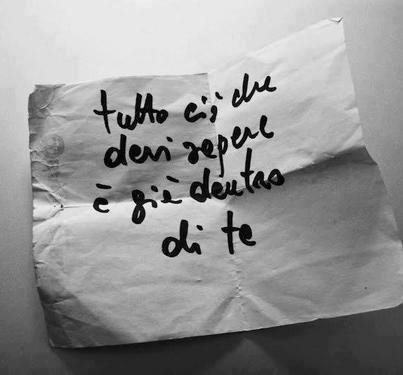 tutto ciò che
devi sapere
è già dentro
di te